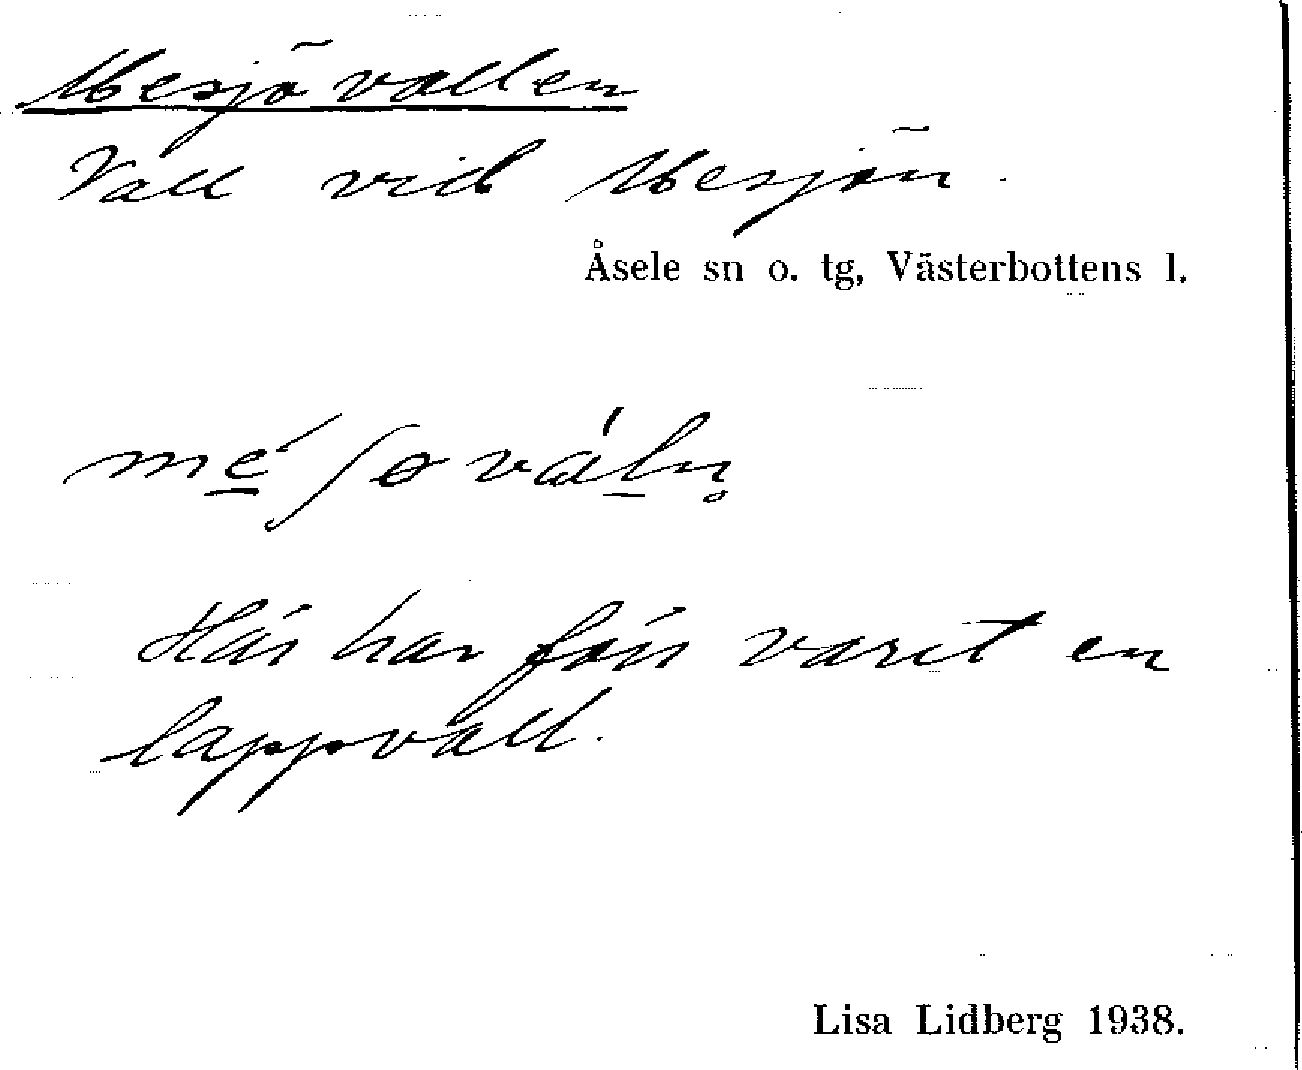 Mesjövallen
Vall vid Mesjön.
Åsele sn o. tg, Västerbottens l.
Här har förr varit en
lappvall.
Lisa Lidberg 1938.